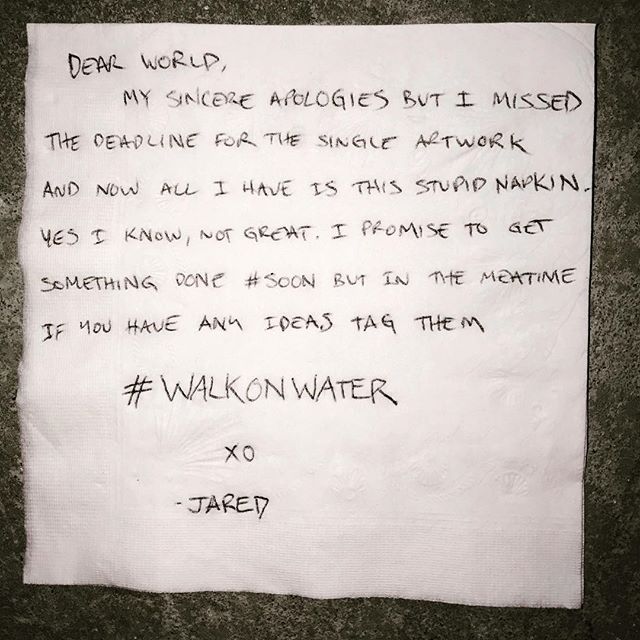 DEAR WORLD,
MY SINCERE APOLOGIES BUT I MISSED
THE DEADLINE FOR THE SINGLE ARTWORK
AND NOW ALL I HAVE IS THIS STUPID NAPKIN.
YES I KNOW, NOT GREAT. I PROMISE TO GET
SOMETHING DONE #SOON BUT IN THE MEATIME
IF YOU HAVE ANY IDEAS TAG THEM
#WALKONWATER
XO
-JARED